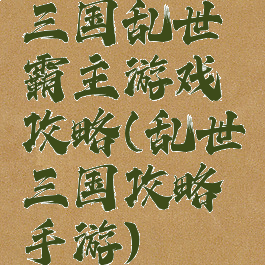 三国乱世
霸主游戏
攻略(乱世
三国攻略
手游)